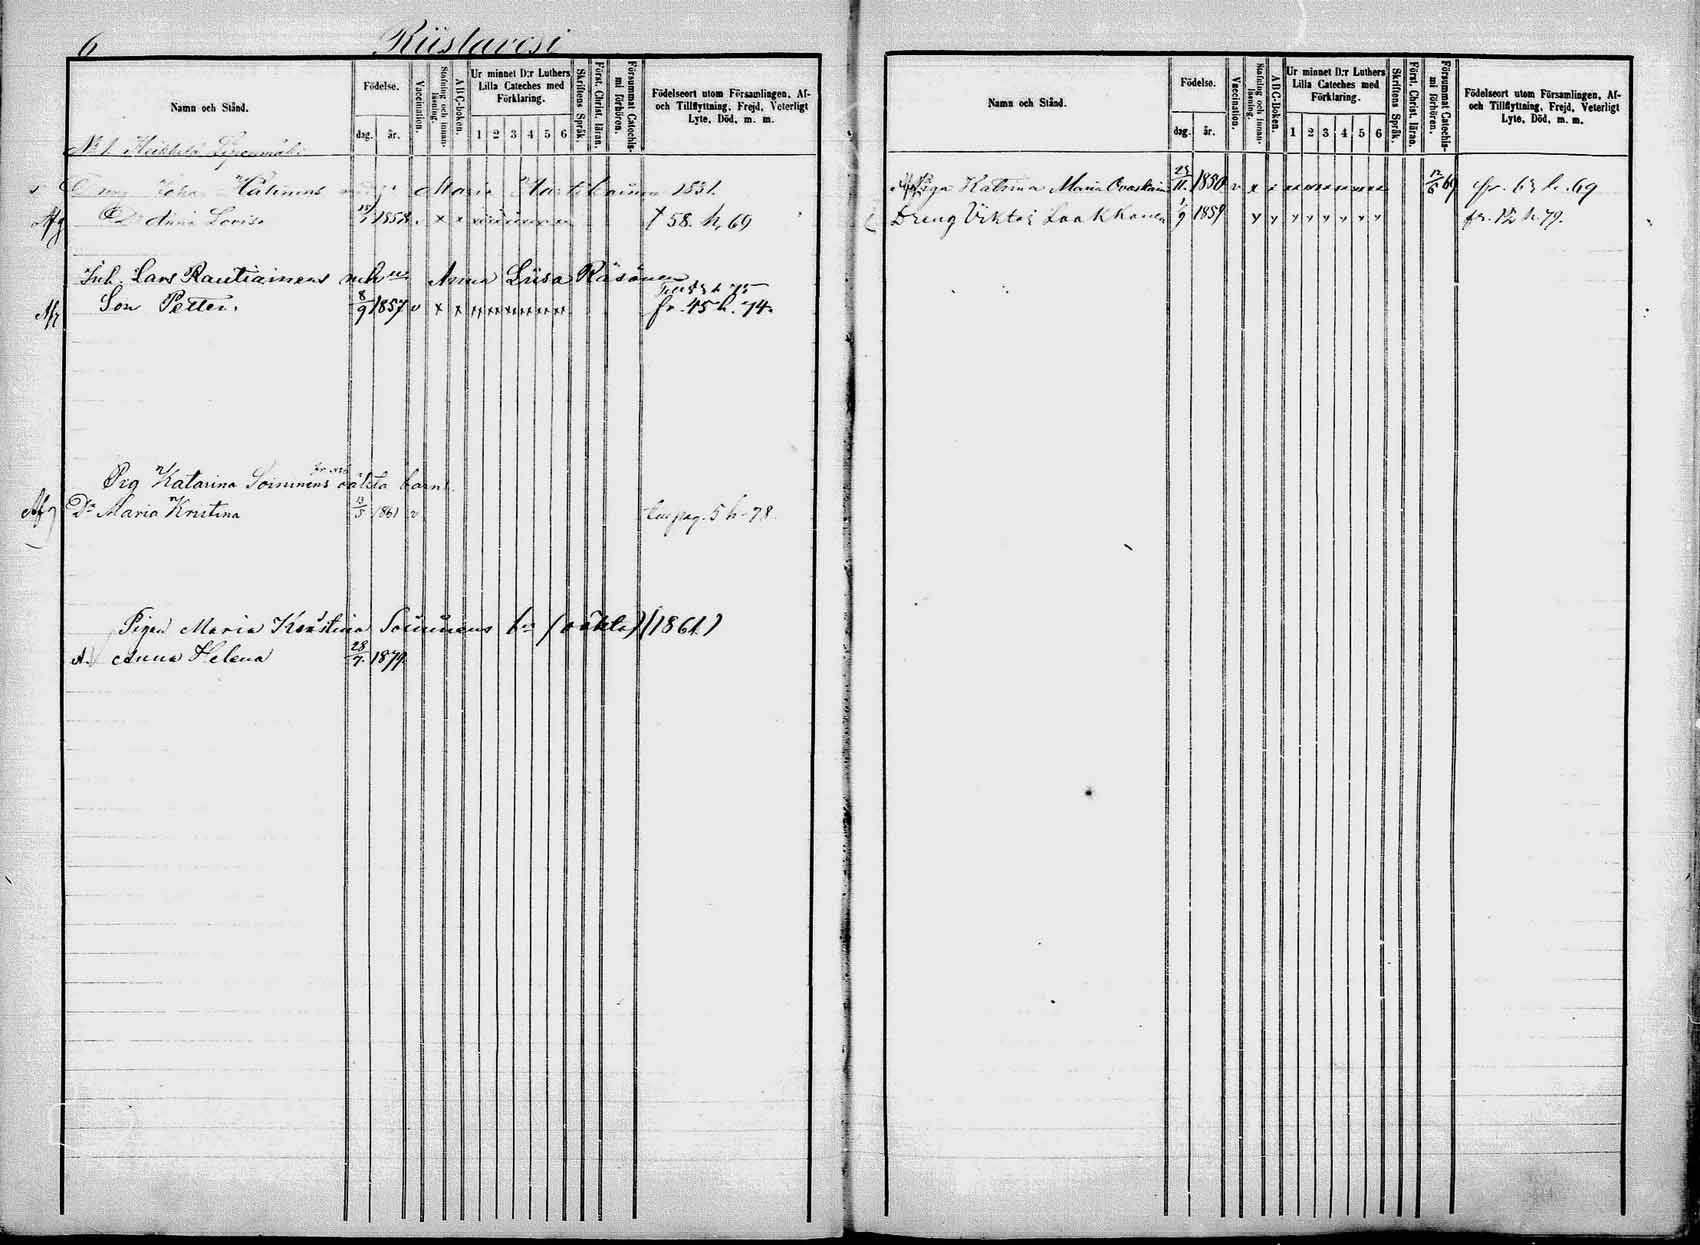 6 Riistavesi
Namn och Stånd.
Födelse.
dag. år.
Vaccination.
Stafning och innan-läsning.
ABC-boken.
Ur minnet D:r Luthers
Lilla Cateches med
Förklaring.
1 2 3 4 5 6
Skriftens Språk.
Först. Christ. läran.
Försummat Catechis-
mi förhören.
Födelseort utom Församlingen, Af-
och Tillflyttning, Frejd, Veterligt
Lyte, Död, m. m.
No 1.
Maria 1831.
Afg Dr Anna Lovisa 1858 x x † 58. h, 69
Inh. Lars Rautiainens Anna Liisa Räsänen
Son Petter. 8/9 1857 v x x x x x x x x fr. 45 h. 74.
Pig Katarina Soininens oäkta barn.
Afg Dr Maria Kristina 13/5 1861 v pag. 5 h. 78.
Pigan Maria Kristina Soininens (oäkta) (1861)
Anna Helena 28/7 1879
Namn och Stånd.
Födelse.
dag. år.
Vaccination.
Stafning och innan-läsning.
ABC-Boken.
Ur minnet D:r Luthers
Lilla Cateches med
Förklaring.
1 2 3 4 5 6
Skriftens Språk.
Först. Christ. läran.
Försummat Catechis-
mi förhören.
Födelseort utom Församlingen, Af-
och Tillflyttning, Frejd, Veterligt
Lyte, Död, m. m.
Piga Katrina Maria Ovaskain 23/11 1850 v x x x x x x x x 12/6 69 fr. 63 h. 69
Dreng Viktor Laakkonen 1/9 1859 x x x x x x x x fr. 12 h. 79.